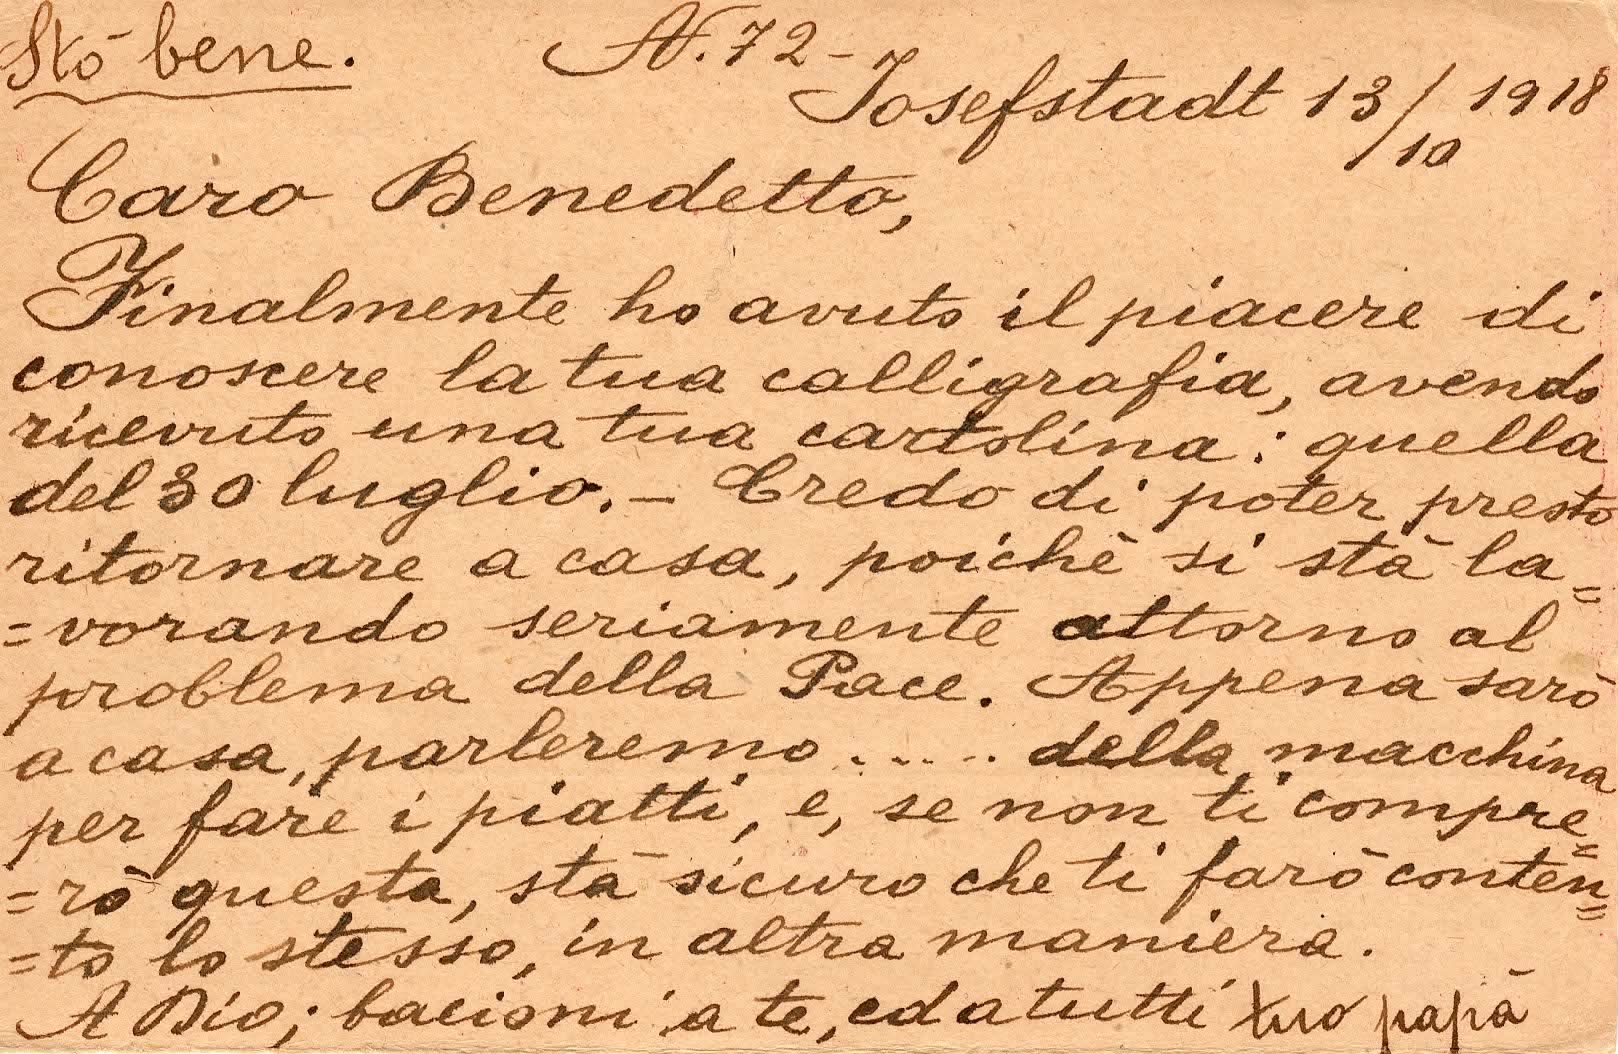 Stō bene. N. 72 -
Josefstadt 13/10 1918
Caro Benedetto,
Finalmente ho avuto il piacere di
conoscere la tua calligrafia, avendo
ricevuto una tua cartolina: quella
del 30 luglio. - Credo di poter presto
ritornare a casa, poichē si stā la=
=vorando seriamente attorno al
problema della Pace. Appena sarō
a casa, parleremo ..... della macchina
per fare i piatti, e, se non ti compre=
=rō questa, stā sicuro che ti farō conten=
=to lo stesso, in altra maniera.
A Dio; bacioni a te, ed a tutti tuo papā